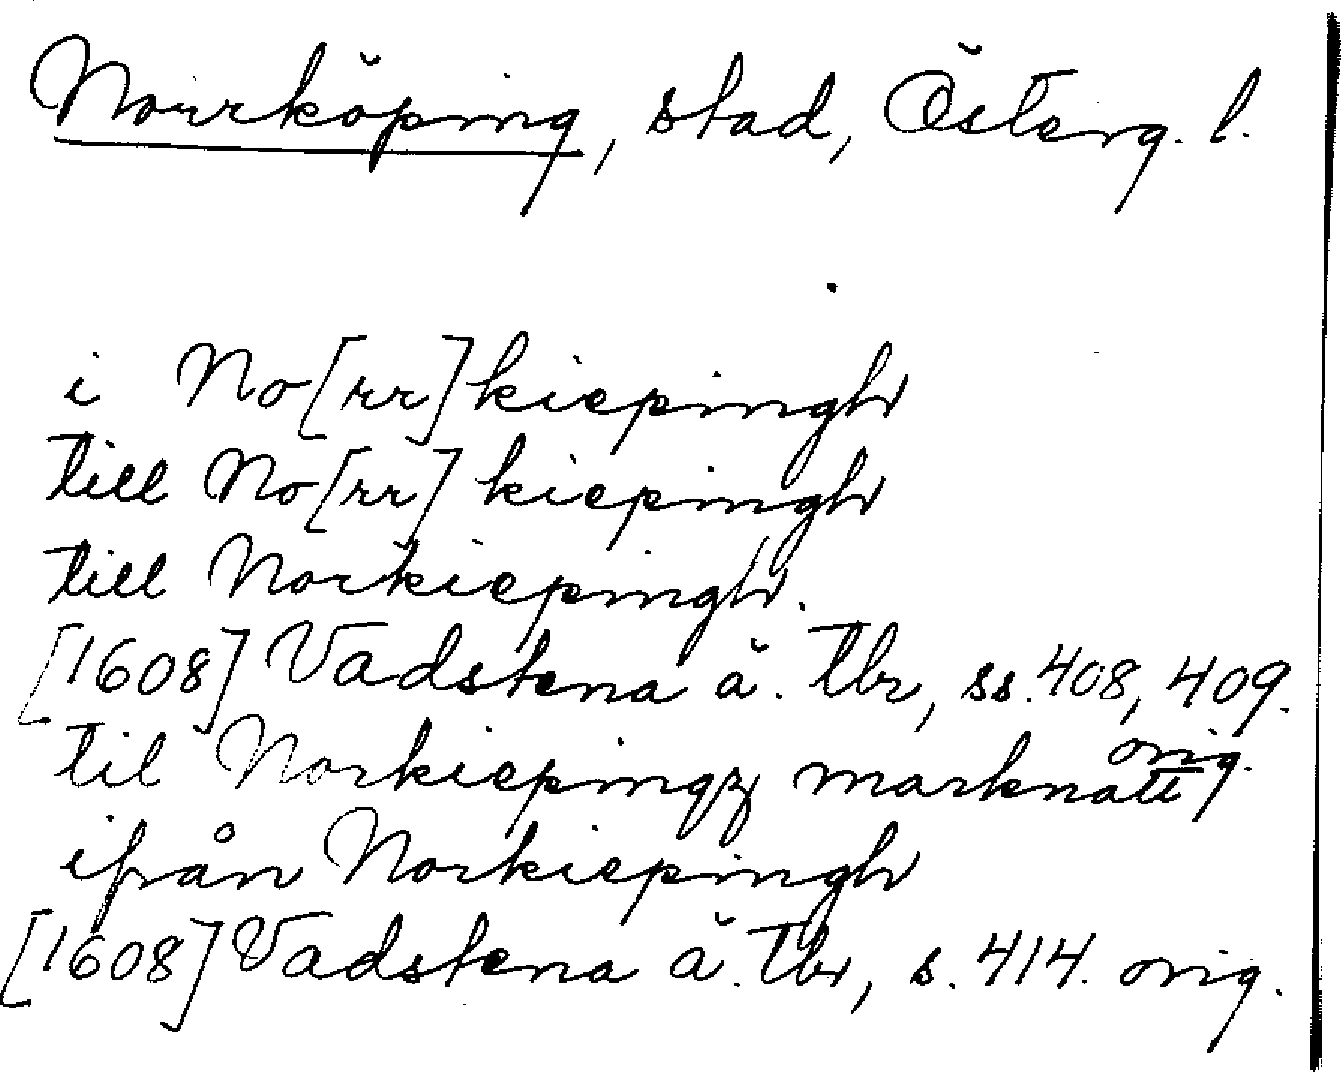 Norrköping, stad, Österg. l.
i No[rr]kiepingh
till No[rr]kiepingh
till Norkiepingh.
[1608] Vadstena ä. tbr, ss. 408, 409.
orig.
til Norkiepingz marknatt
ifrån Norkiepingh
[1608] Vadstena ä. tbr, s. 414. orig.